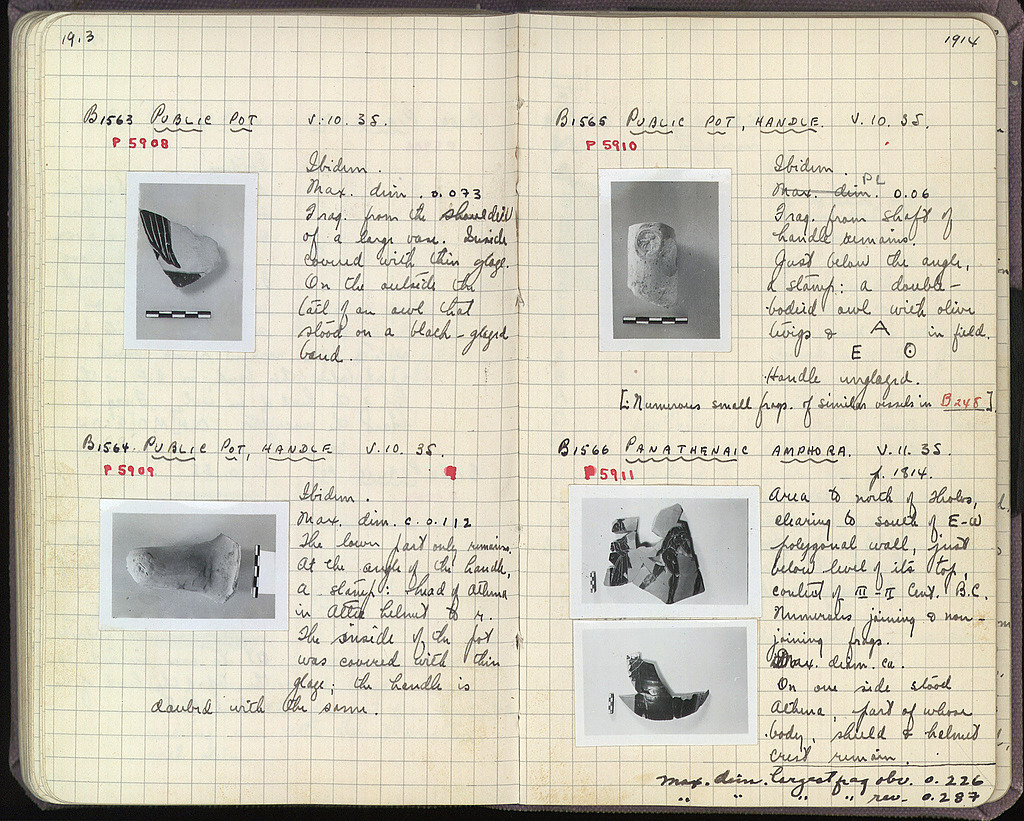 19.3
B1563 PUBLIC POT V.10.35.
P 5908
Ibidem.
Max. dim. 0.073
Frag. from the shoulder
of a large vase. Inside
covered with thin glaze.
On the outside the
tail of an owl that
stood on a black-glazed
band.
B1564. PUBLIC POT, HANDLE V.10.35.
P 5909
Ibidem.
Max. dim. c. 0.112
The lower part only remains.
At the angle of the handle,
a stamp: head of Athena
in Attic helmet to r.
The inside of the pot
was covered with thin
glaze; the handle is
daubed with the same.
1914
B1565 PUBLIC POT, HANDLE. V.10.35.
P 5910
Ibidem.
PL
Max. dim. 0.06
Frag. from shaft of
handle remains.
Just below the angle,
a stamp: a double-
bodied owl with olive
twigs & A in field.
E ⊙
Handle unglazed.
[: Numerous small frags. of similar vessels in B248]
B1566 PANATHENAIC AMPHORA. V.11.35.
P 5911
p. 1814.
Area to north of Tholos,
clearing to south of E-W
polygonal wall, just
below level of its top,
context of III-II Cent. B.C.
Numerous joining & non-
joining frags.
Max. dim. ca.
On one side stood
Athena, part of whose
body, shield & helmet
crest remain.
max. dim. largest frag obv. 0.226
" " " " rev. 0.287